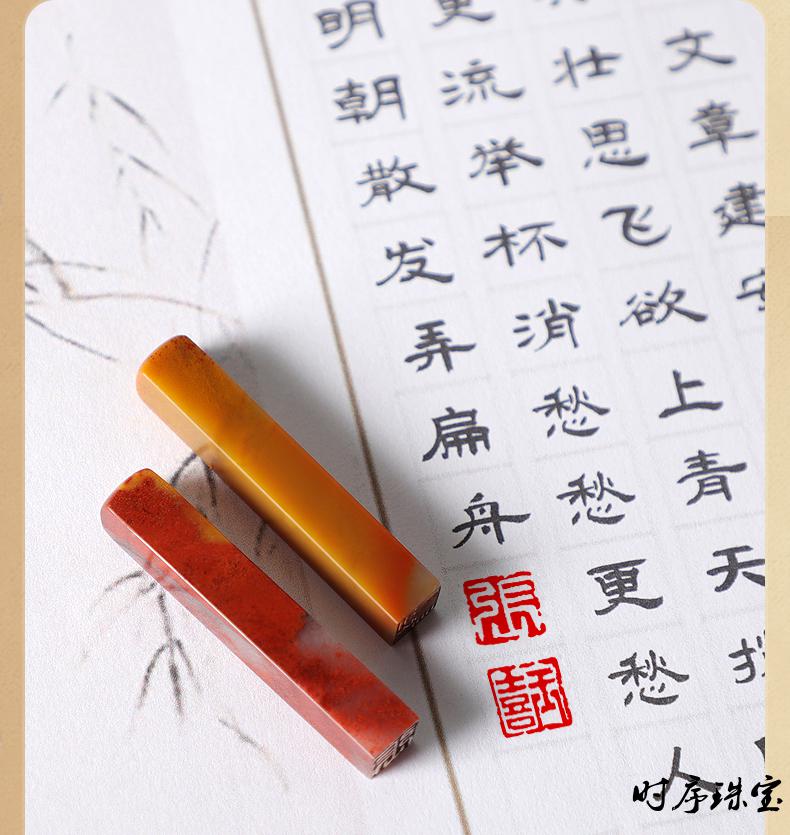 文章建安
壮思飞欲上青天
更流举杯消愁愁更愁人
明朝散发弄扁舟
张
时序珠宝